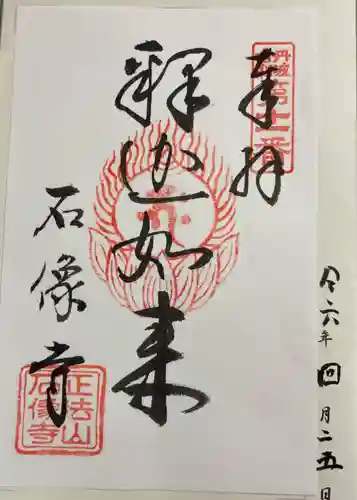 奉拝
丹波
第十一番
釋迦如来
石像寺
正法山
石像寺
令六年四月二五日